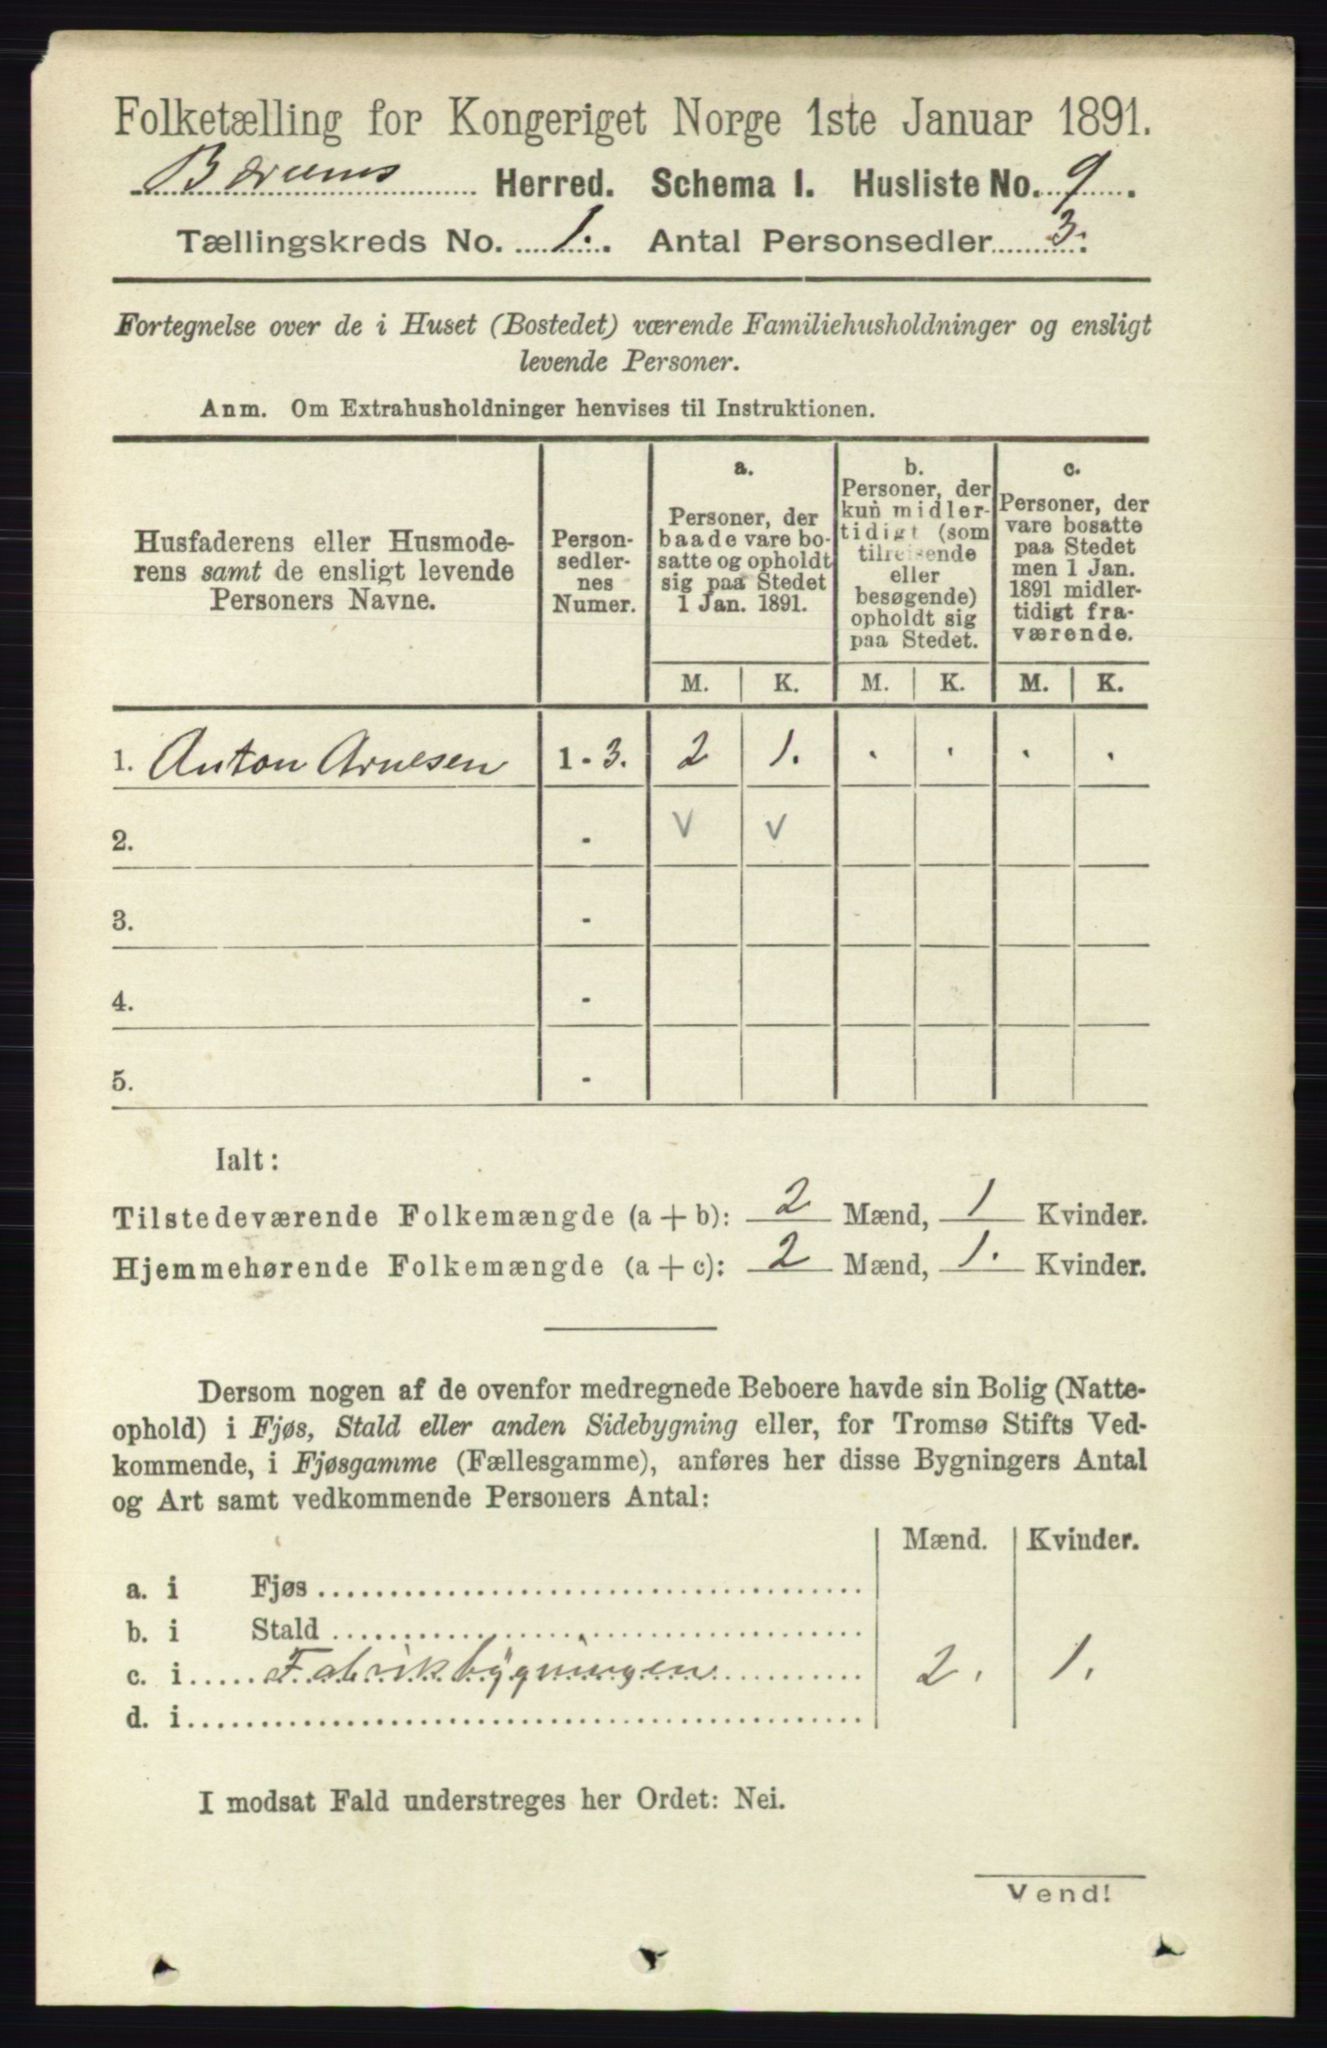 Folketælling for Kongeriget Norge 1ste Januar 1891.
Bærums Herred. Schema 1. Husliste No. 9.
Tællingskreds No. 1. Antal Personsedler 3.
Fortegnelse over de i Huset (Bostedet) værende Familiehusholdninger og ensligt
levende Personer.
Anm. Om Extrahusholdninger henvises til Instruktionen.
Husfaderens eller Husmode-
rens samt de ensligt levende
Personers Navne.
Person-
sedler-
nes
Numer.
a.
Personer, der
baade vare bo-
satte og opholdt
sig paa Stedet
1 Jan. 1891.
b.
Personer, der
kun midler-
tidigt (som
tilreisende
eller
besøgende)
opholdt sig
paa Stedet.
c.
Personer, der
vare bosatte
paa Stedet
men 1 Jan.
1891 midler-
tidigt fra-
værende.
M. K. M. K. M. K.
1. Anton Arnesen 1 - 3. 2 1. . . . .
2. - V V
3. -
4. -
5. -
Ialt:
Tilstedeværende Folkemængde (a + b): 2 Mænd, 1 Kvinder.
Hjemmehørende Folkemængde (a + c): 2 Mænd, 1. Kvinder.
Dersom nogen af de ovenfor medregnede Beboere havde sin Bolig (Natte-
ophold) i Fjøs, Stald eller anden Sidebygning eller, for Tromsø Stifts Ved-
kommende, i Fjøsgamme (Fællesgamme), anføres her disse Bygningers Antal
og Art samt vedkommende Personers Antal:
Mænd. Kvinder.
a. i Fjøs
b. i Stald
c. i Fabrikbygningen 2. 1.
d. i
I modsat Fald understreges her Ordet: Nei.
Vend!